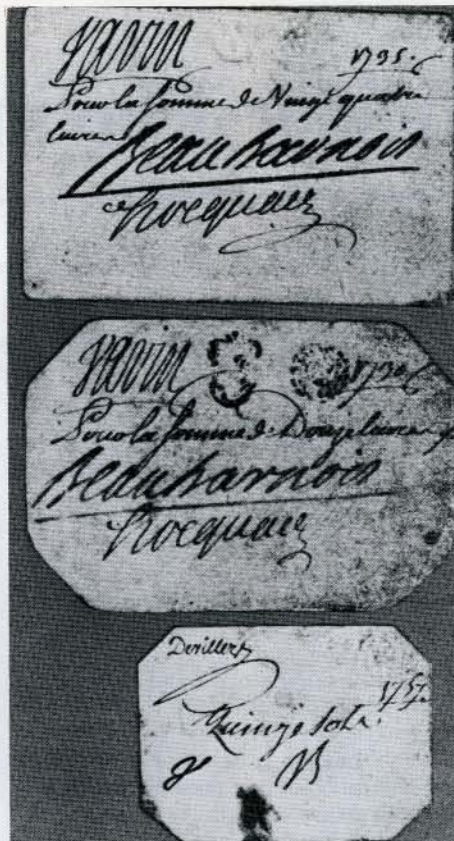 Varin
1735.
Pour la somme de Vingt quatre
livres
Beauharnois
Hocquart
Varin
1730
Pour la somme de Douze livres
Beauharnois
Hocquart
Devillers
1757.
Quinze sols.